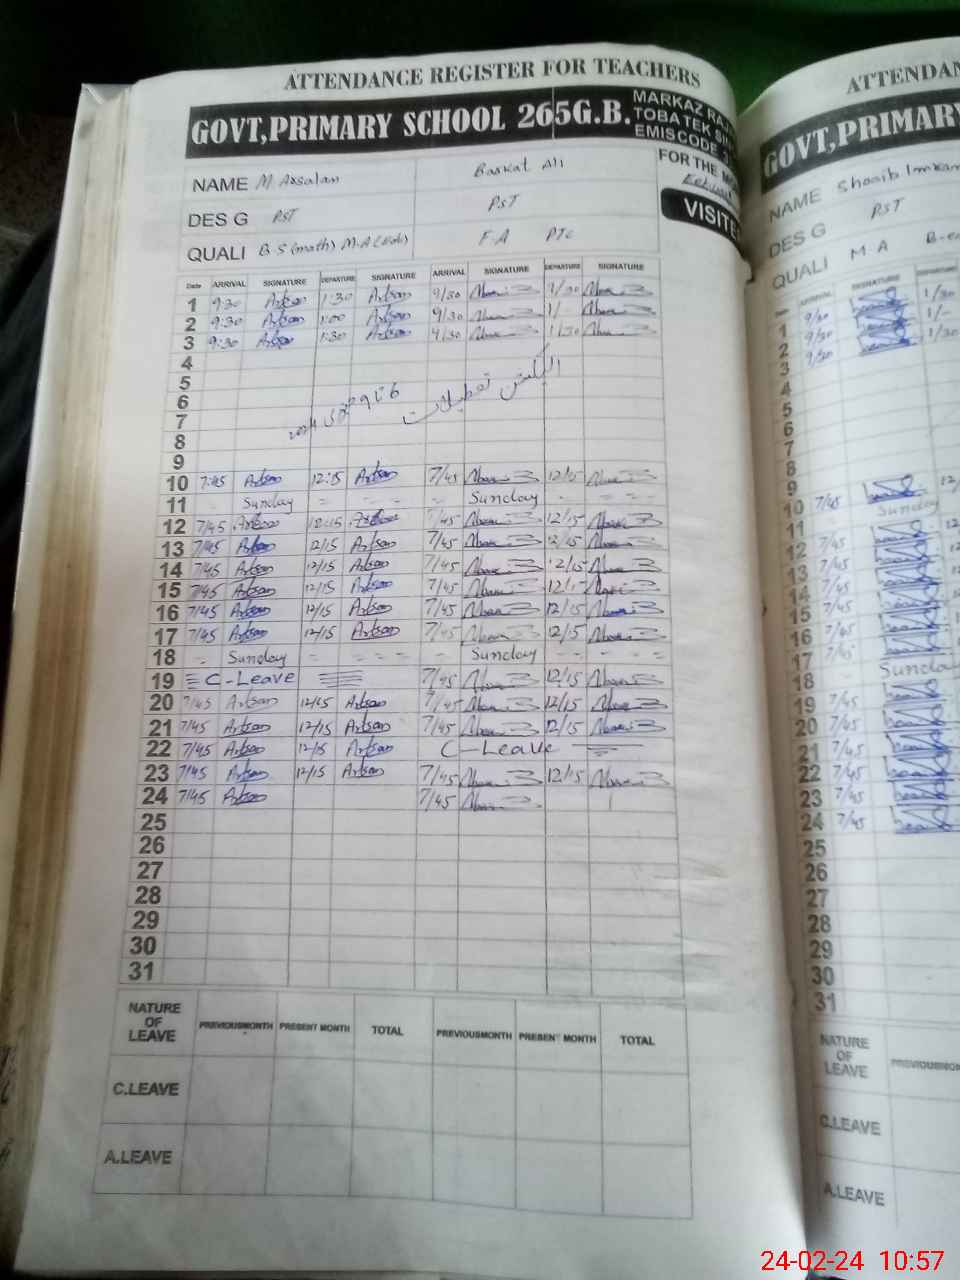 ATTENDANCE REGISTER FOR TEACHERS
GOVT,PRIMARY SCHOOL 265G.B.
MARKAZ
TOBA TEK
EMISCODE
NAME M Arsalan Barkat Ali
FOR THE
DES G PST PST
VISITE
QUALI B S (math) M-A (Edu) F-A PTC
Date ARRIVAL SIGNATURE DEPARTURE SIGNATURE ARRIVAL SIGNATURE DEPARTURE SIGNATURE
1 9:30 Arslan 1:30 Arslan 9/30 1/30
2 9:30 Arslan 1:00 Arslan 9/30 1/-
3 9:30 Arslan 1:30 Arslan 9/30 1/30
4
5
الیکشن تعطیلات
6
7
8
9
10 7:45 Arslan 12:15 Arslan 7/45 12/15
11 Sunday Sunday
12 7/45 Arslan 12:15 Arslan 7/45 12/15
13 7/45 Arslan 12/15 Arslan 7/45 12/15
14 7/45 Arslan 12/15 Arslan 7/45 12/15
15 7/45 Arslan 12/15 Arslan 7/45
16 7/45 Arslan 12/15 Arslan 7/45 12/15
17 7/45 Arslan 12/15 Arslan 7/45 12/15
18 Sunday Sunday
19 C-Leave 7/45 12/15
20 7/45 Arslan 12/15 Arslan 7/45 12/15
21 7/45 Arslan 12/15 Arslan 7/45 12/15
22 7/45 Arslan 12/15 Arslan C-Leave
23 7/45 Arslan 12/15 Arslan 7/45 12/15
24 7/45 Arslan 7/45
25
26
27
28
29
30
31
NATURE OF LEAVE PREVIOUSMONTH PRESENT MONTH TOTAL PREVIOUSMONTH PRESENT MONTH TOTAL
C.LEAVE
A.LEAVE
ATTENDAN
GOVT,PRIMARY
NAME Shoaib Imran
DES G PST
QUALI M-A
ARRIVAL SIGNATURE DEPARTURE
1 9/30 1/30
2 9/30 1/-
3 9/30 1/30
4
5
6
7
8
9
10 7/45
11 Sunday
12 7/45
13 7/45
14 7/45
15 7/45
16 7/45
17 7/45
18 Sunday
19 7/45
20 7/45
21 7/45
22 7/45
23 7/45
24 7/45
25
26
27
28
29
30
31
NATURE OF LEAVE
C.LEAVE
A.LEAVE
24-02-24 10:57